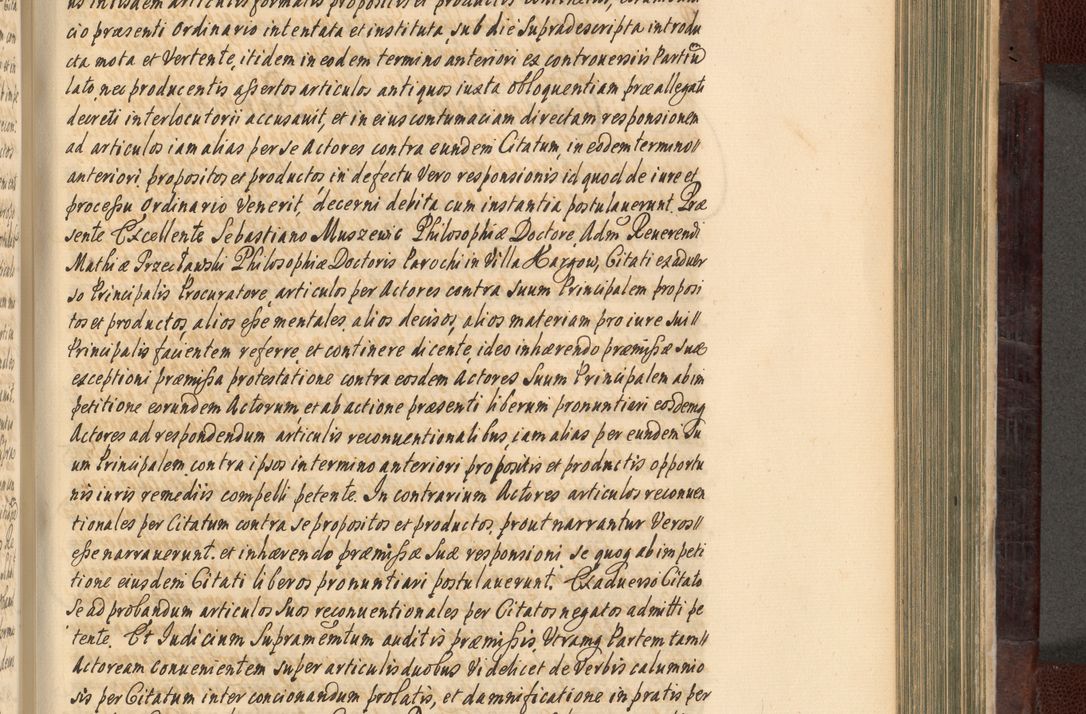 cio præsenti Ordinario intentata et instituta, sub die supradescripta introdu
cta mota et Vertente, itidem in eodem termino anteriori ex controversiis Partiũ
lato, nec producentis assertos articulos antiquos iuxta obloquentiam præallegati
decreti interlocutorii accusauit, et in eius contumaciam directam responsionem
ad articulos iam alias per se Actores contra eundem Citatum, in eodem termino
anteriori propositos et productos, in defectu Vero responsionis id quod de iure et
processu Ordinario Venerit, decerni debita cum instantia postulauerunt. Præ
sente Excellente Sebastiano Muszewic Philosophiæ Doctore, Adm Reuerendi
Mathiæ Przecławski Philosophiæ Doctoris Parochi in Villa Hargow, Citati ex aduer
so Principalis Procuratore, articulos per Actores contra suum Principalem proposi
tos et productos, alios esse mentales, alios decisos, alios materiam pro iure sui
Principalis facientem referre, et continere dicente, ideo inhærendo præmissæ suæ
exceptioni præmissa protestatione contra eosdem Actores Suum Principalem ab im
petitione eorundem Actorum, et ab actione præsenti liberum pronuntiari eosdemq
Actores ad respondendum articulis reconuentionalibus, iam alias per eundem Su
um Principalem contra ipsos in termino anteriori propositis et productis opportu
nis iuris remediis compelli petente. In contrarium Actores articulos reconuen
tionales per Citatum contra se propositos et productos, prout narrantur Veros
esse narrauerunt, et inhærendo præmissæ suæ responsioni se quoq ab impeti
tione eiusdem Citati liberos pronuntiari postulauerunt. Ex aduerso Citato
se ad probandum articulos suos reconuentionales per Citatos negatos admitti pe
tente. Et Iudicium Supramemtum auditis præmissis, Vtramq Partem tam
Actoream conuenientem super articulis duobus Videlicet de Verbis calumnio
sis per Citatum inter concionandum prolatis, et damnificatione in pratis per